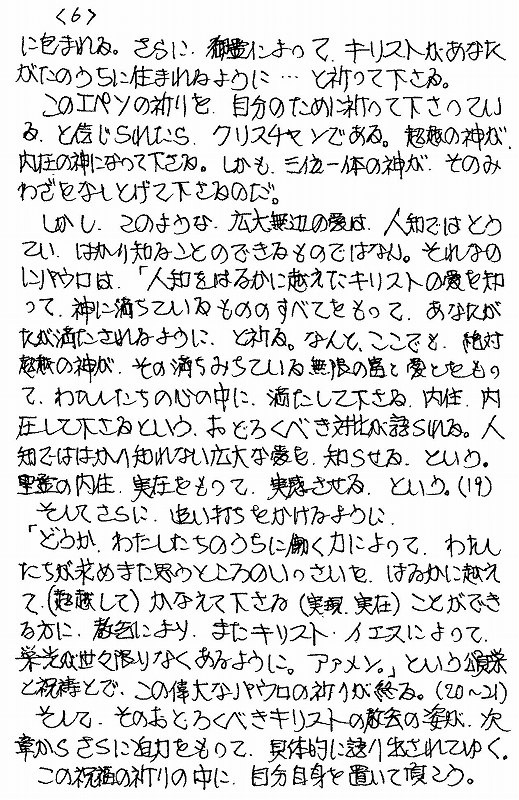 <6>
に包まれる。さらに、御霊によって、キリストがあなた
がたのうちに住まれるように…と祈って下さる。
このエペソの祈りを、自分のために祈って下さってい
る、と信じられたら、クリスチャンである。超越の神が、
内在の神になって下さる。しかも、三位一体の神が、そのみ
わざをなしとげて下さるのだ。
しかし、このような、広大無辺の愛は、人知ではとう
てい、はかり知ることのできるものではない。それなの
にパウロは、「人知をはるかに越えたキリストの愛を知
って、神に満ちているもののすべてをもって、あなたが
たが満たされるように、と祈る。なんと、ここでも、絶対
超越の神が、その満ちみちている無限の富と愛とをもっ
て、わたしたちの心の中に、満たして下さる、内住、内
在して下さるという、おどろくべき対比が語られる。人
知でははかり知れない広大な愛を、知らせる、という。
聖霊の内住、実在をもって、実感させる、という。(19)
そしてさらに、追い打ちをかけるように、
「どうか、わたしたちのうちに働く力によって、わたし
たちが求めまた思うところのいっさいを、はるかに越え
て、(超越して)かなえて下さる(実現、実在)ことができ
る方に、教会により、またキリスト・イエスによって、
栄光が世々限りなくあるように。アァメン。」という頌栄
と祝祷とで、この偉大なパウロの祈りが終る。(20~21)
そして、そのおどろくべきキリストの教会の姿が、次
章からさらに迫力をもって、具体的に語り出されてゆく。
この祝福の祈りの中に、自分自身を置いて頂こう。